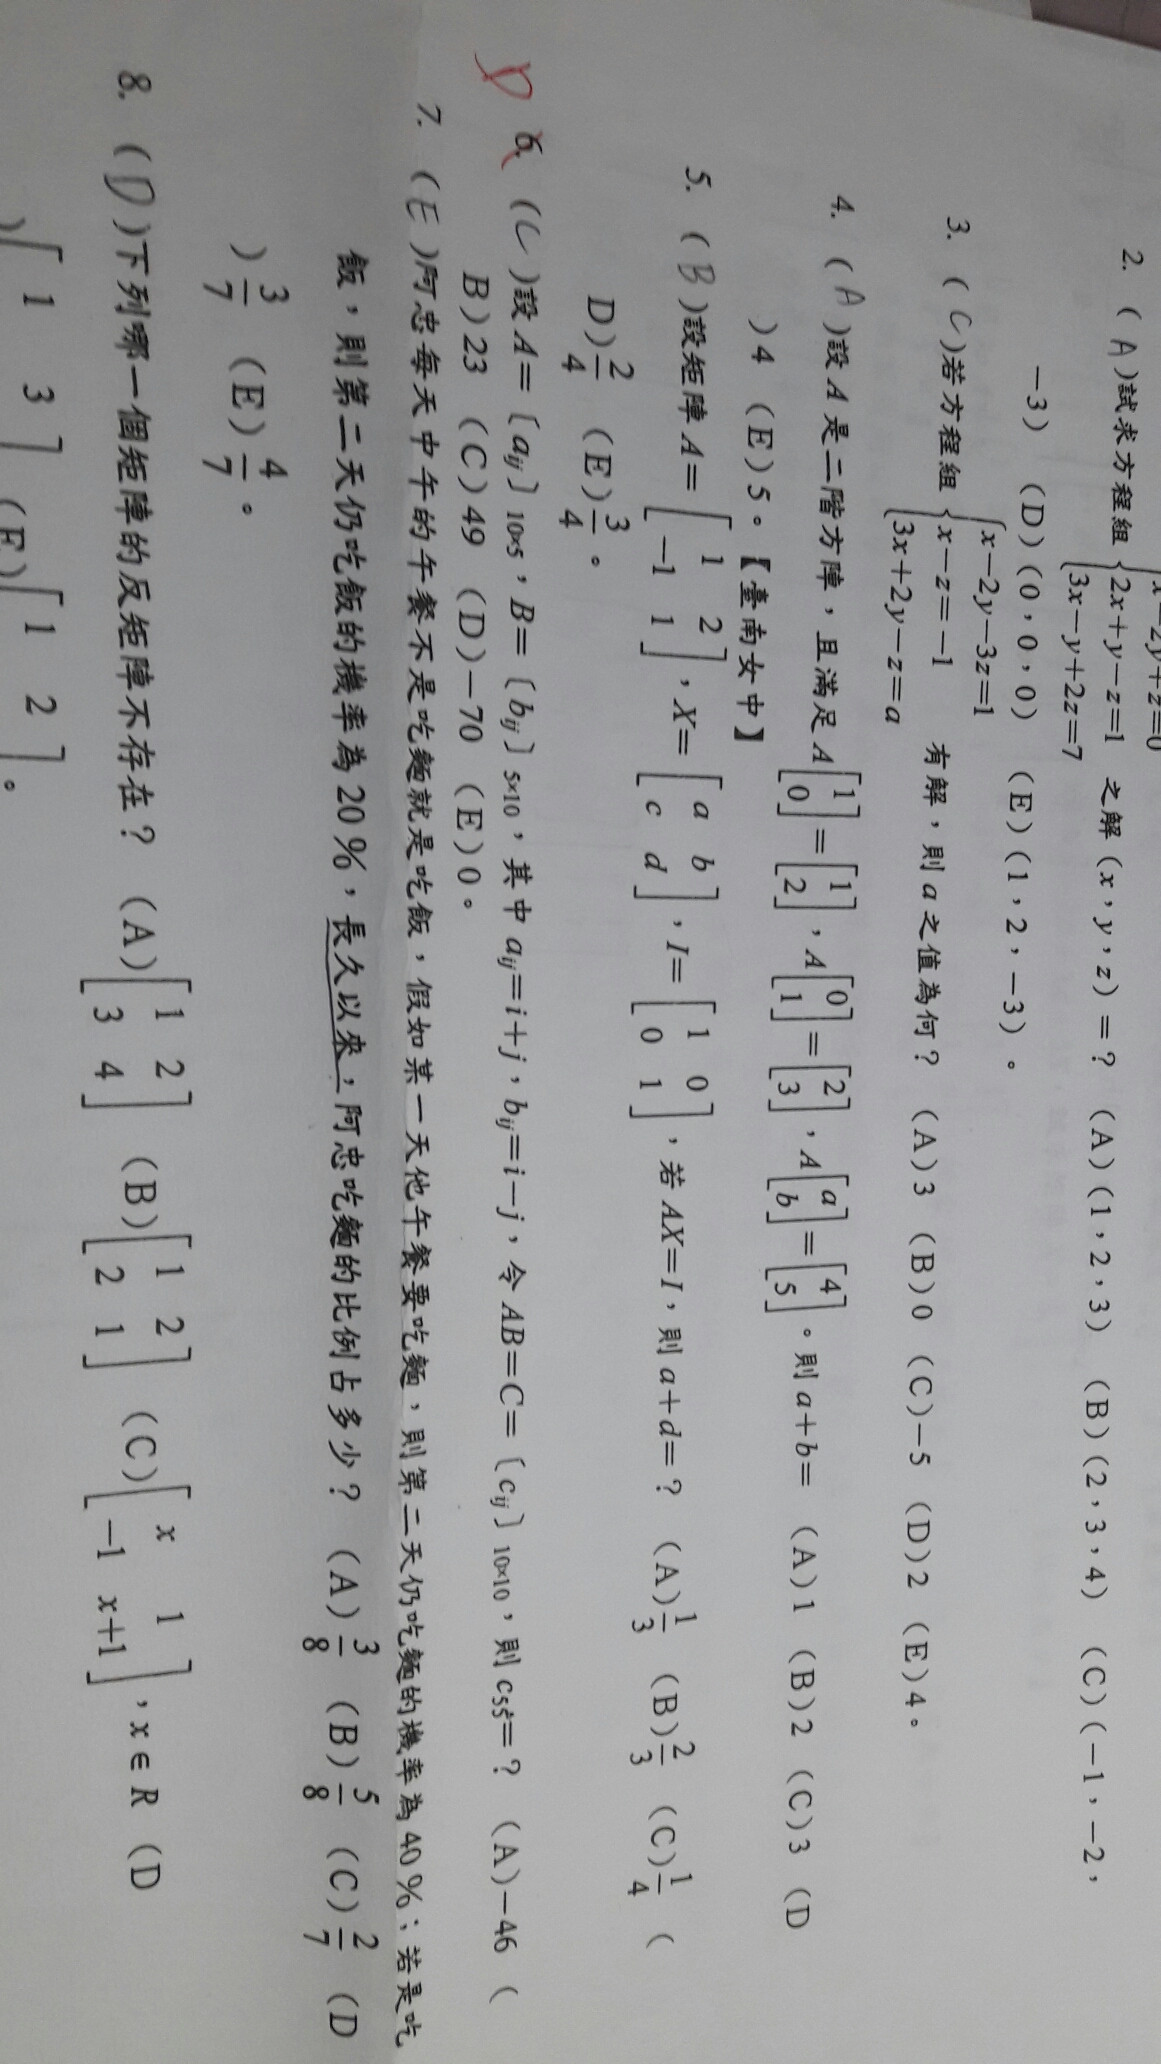 x−2y+z=0
2. (A)試求方程組{2x+y−z=1 之解(x,y,z)=? (A)(1,2,3) (B)(2,3,4) (C)(−1,−2,
3x−y+2z=7
−3) (D)(0,0,0) (E)(1,2,−3)。
x−2y−3z=1
3. (C)若方程組{x−z=−1 有解,則a之值為何? (A)3 (B)0 (C)−5 (D)2 (E)4。
3x+2y−z=a
4. (A)設A是二階方陣,且滿足A[1 0]=[1 2],A[0 1]=[2 3],A[a b]=[4 5]。則a+b= (A)1 (B)2 (C)3 (D
)4 (E)5。【臺南女中】
5. (B)設矩陣A=[1 2 −1 1],X=[a b c d],I=[1 0 0 1],若AX=I,則a+d=? (A)1/3 (B)2/3 (C)1/4 (
D)2/4 (E)3/4。
D 6. (C)設A=〔aij〕10×5,B=〔bij〕5×10,其中aij=i+j,bij=i−j,令AB=C=〔cij〕10×10,則c55=? (A)−46 (
B)23 (C)49 (D)−70 (E)0。
7. (E)阿忠每天中午的午餐不是吃麵就是吃飯,假如某一天他午餐要吃麵,則第二天仍吃麵的機率為40%;若是吃
飯,則第二天仍吃飯的機率為20%,長久以來,阿忠吃麵的比例占多少? (A)3/8 (B)5/8 (C)2/7 (D
)3/7 (E)4/7。
8. (D)下列哪一個矩陣的反矩陣不存在? (A)[1 2 3 4] (B)[1 2 2 1] (C)[x 1 −1 x+1],x∈R (D
)[1 3 (E)[1 2 。